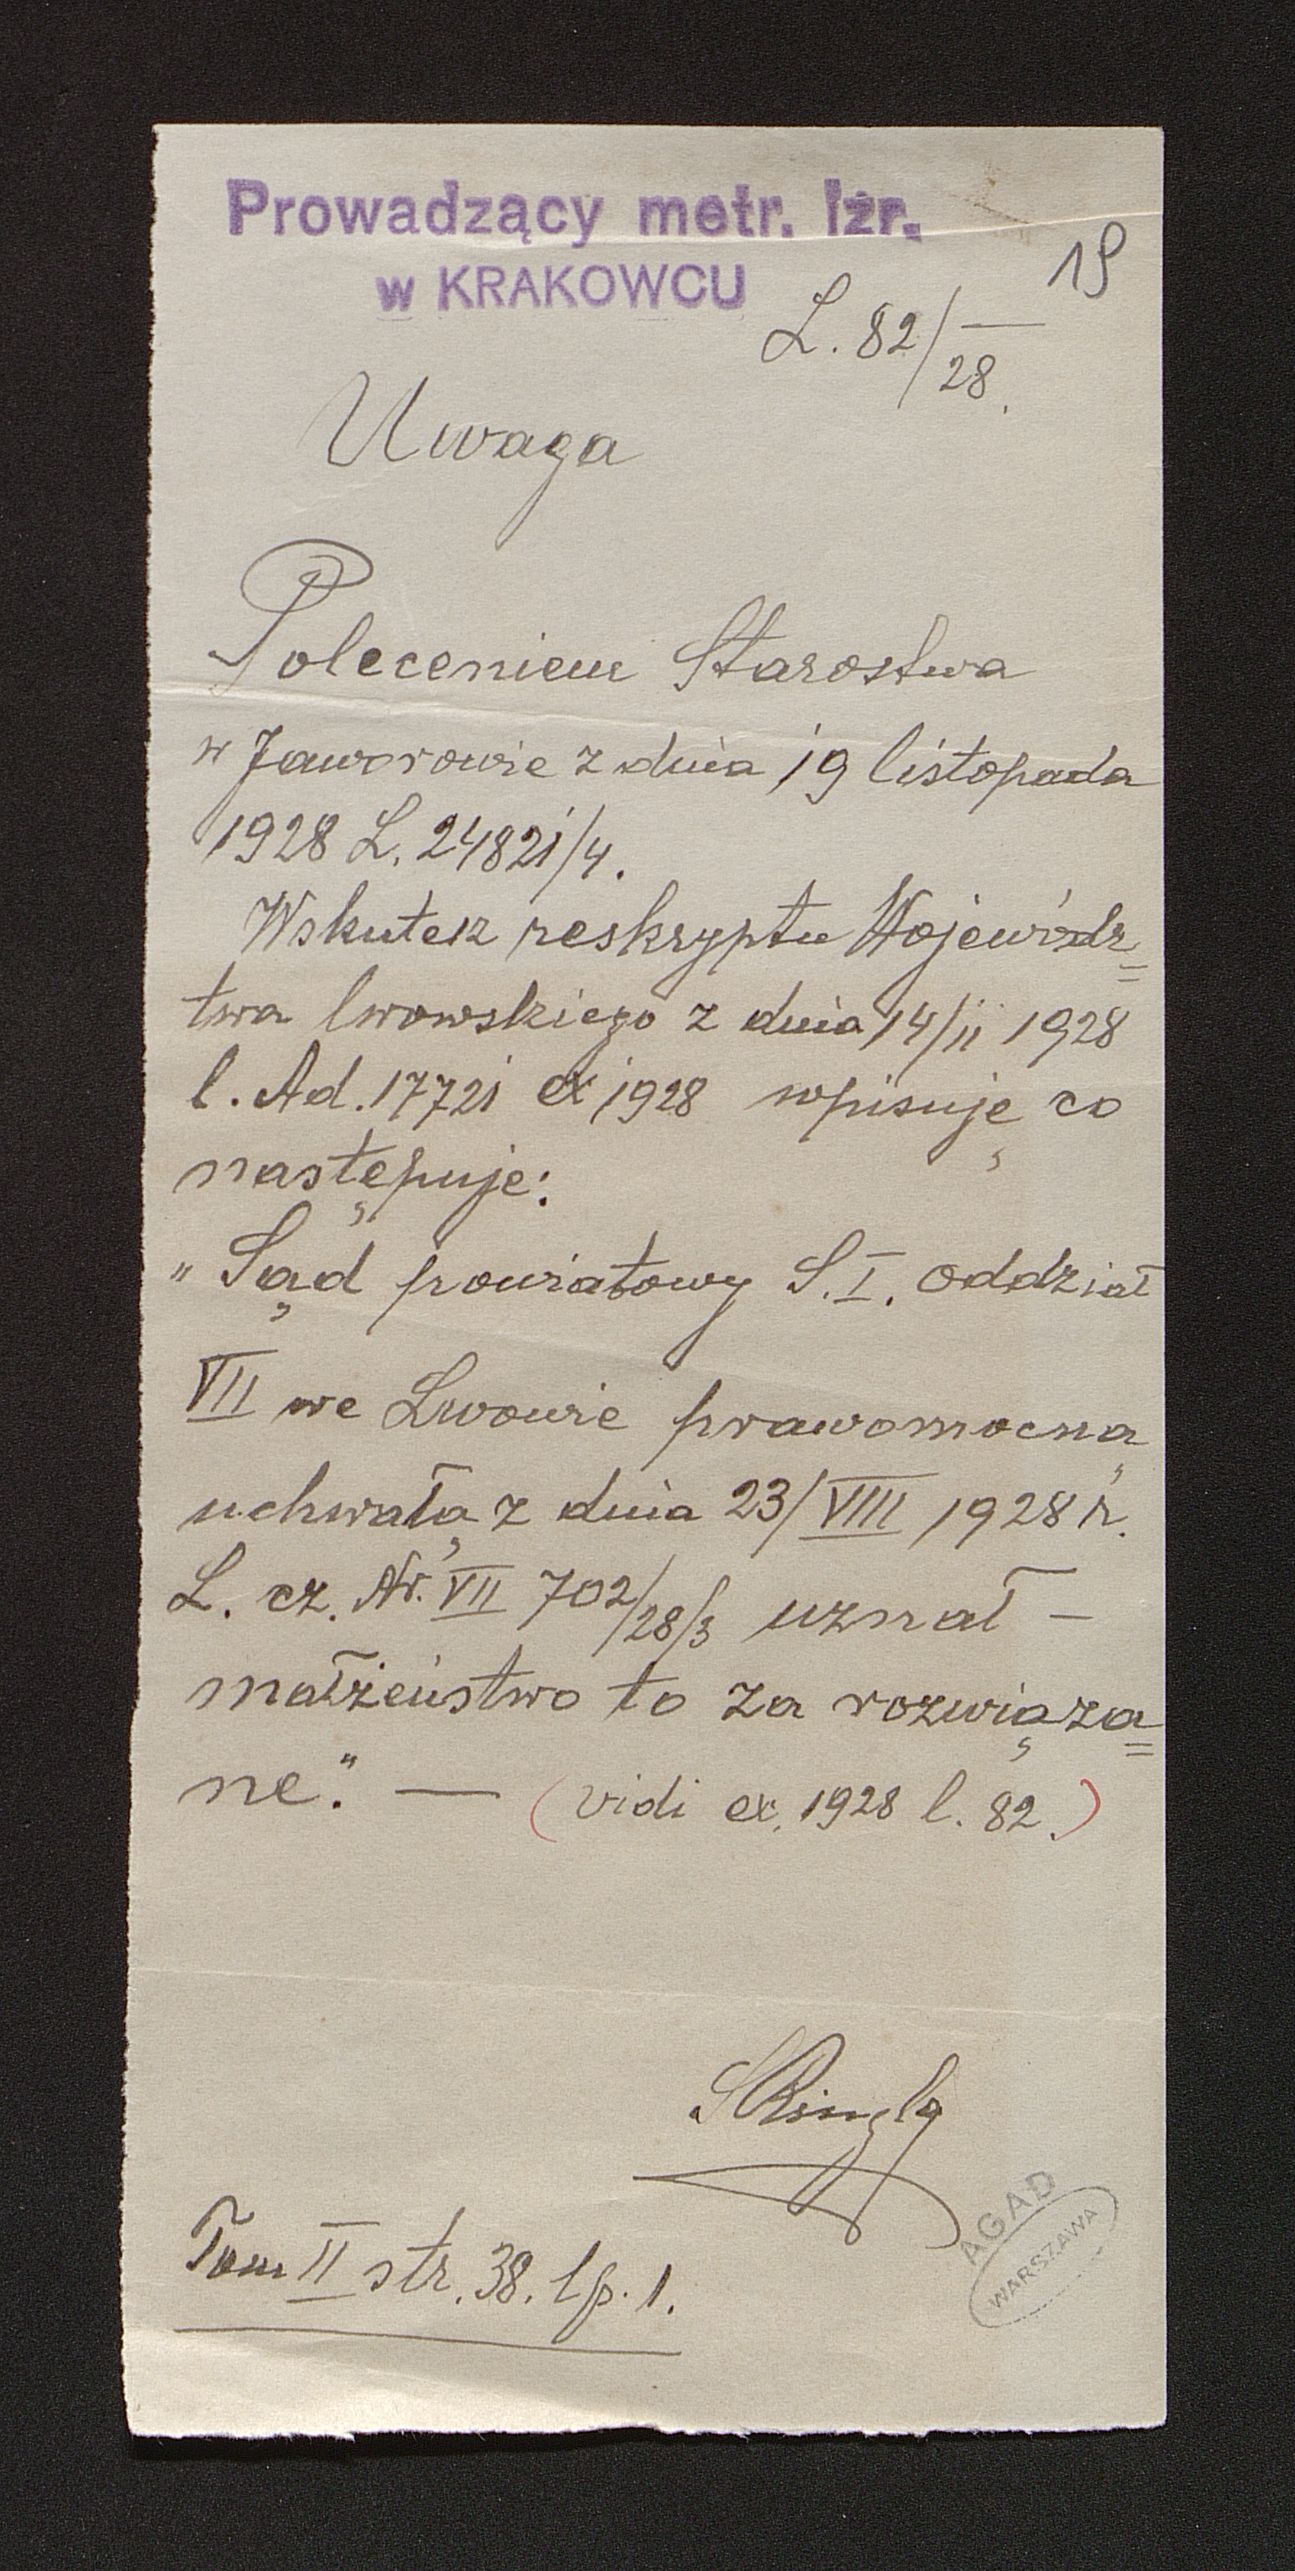 Prowadzący metr. Izr.
w KRAKOWCU
19
L. 82/28.
Uwaga
Poleceniem Starostwa
w Jaworowie z dnia 19 listopada
1928 L. 24821/4.
Wskutek reskryptu Wojewódz=
twa lwowskiego z dnia 14/11 1928
l. Ad. 17721 ex 1928 wpisuję co
następuje:
"Sąd powiatowy S. I. oddział
VII we Lwowie prawomocną
uchwałą z dnia 23/VIII 1928 r.
L. cz. Nr. VII 702/28/3 uznał —
małżeństwo to za rozwiąza=
ne." — (vidi ex. 1928 l. 82.)
Tom II str. 38. lp. 1.
AGAD
WARSZAWA